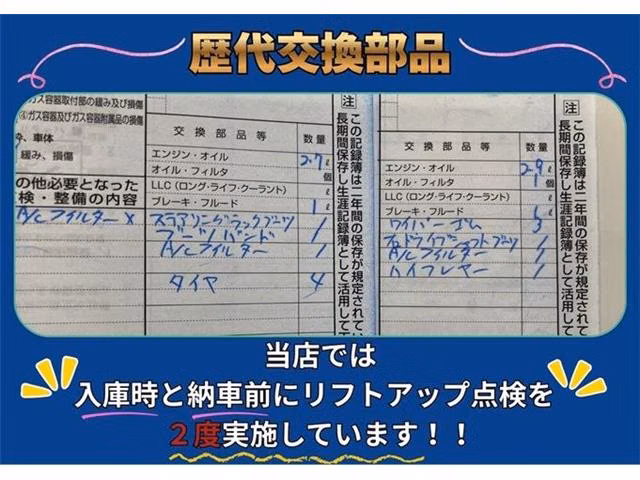 歴代交換部品
ガス容器取付部の緩み及び損傷
④ガス容器及びガス容器附属品の損傷
車体
緩み、損傷
の他必要となった
検・整備の内容
A/Cフィルター ×
交換部品等 数量
エンジン・オイル 2.7 ℓ
オイル・フィルタ 個
LLC(ロング・ライフ・クーラント) ℓ
ブレーキ・フルード 1 ℓ
ステアリングラックブーツ 1
ブーツバンド 1
A/Cフィルター 1
タイヤ 4
注 この記録簿は二年間の保存が規定されてい
長期間保存し生涯記録簿として活用して下
交換部品等 数量
エンジン・オイル 2.9 ℓ
オイル・フィルタ 1 個
LLC(ロング・ライフ・クーラント) ℓ
ブレーキ・フルード ℓ
ワイパーゴム 3
右ドライブシャフトブーツ 1
A/Cフィルター 1
ハイフレヤー 1
注 この記録簿は二年間の保存が規定され
長期間保存し生涯記録簿として活用
当店では
入庫時と納車前にリフトアップ点検を
2度実施しています!!